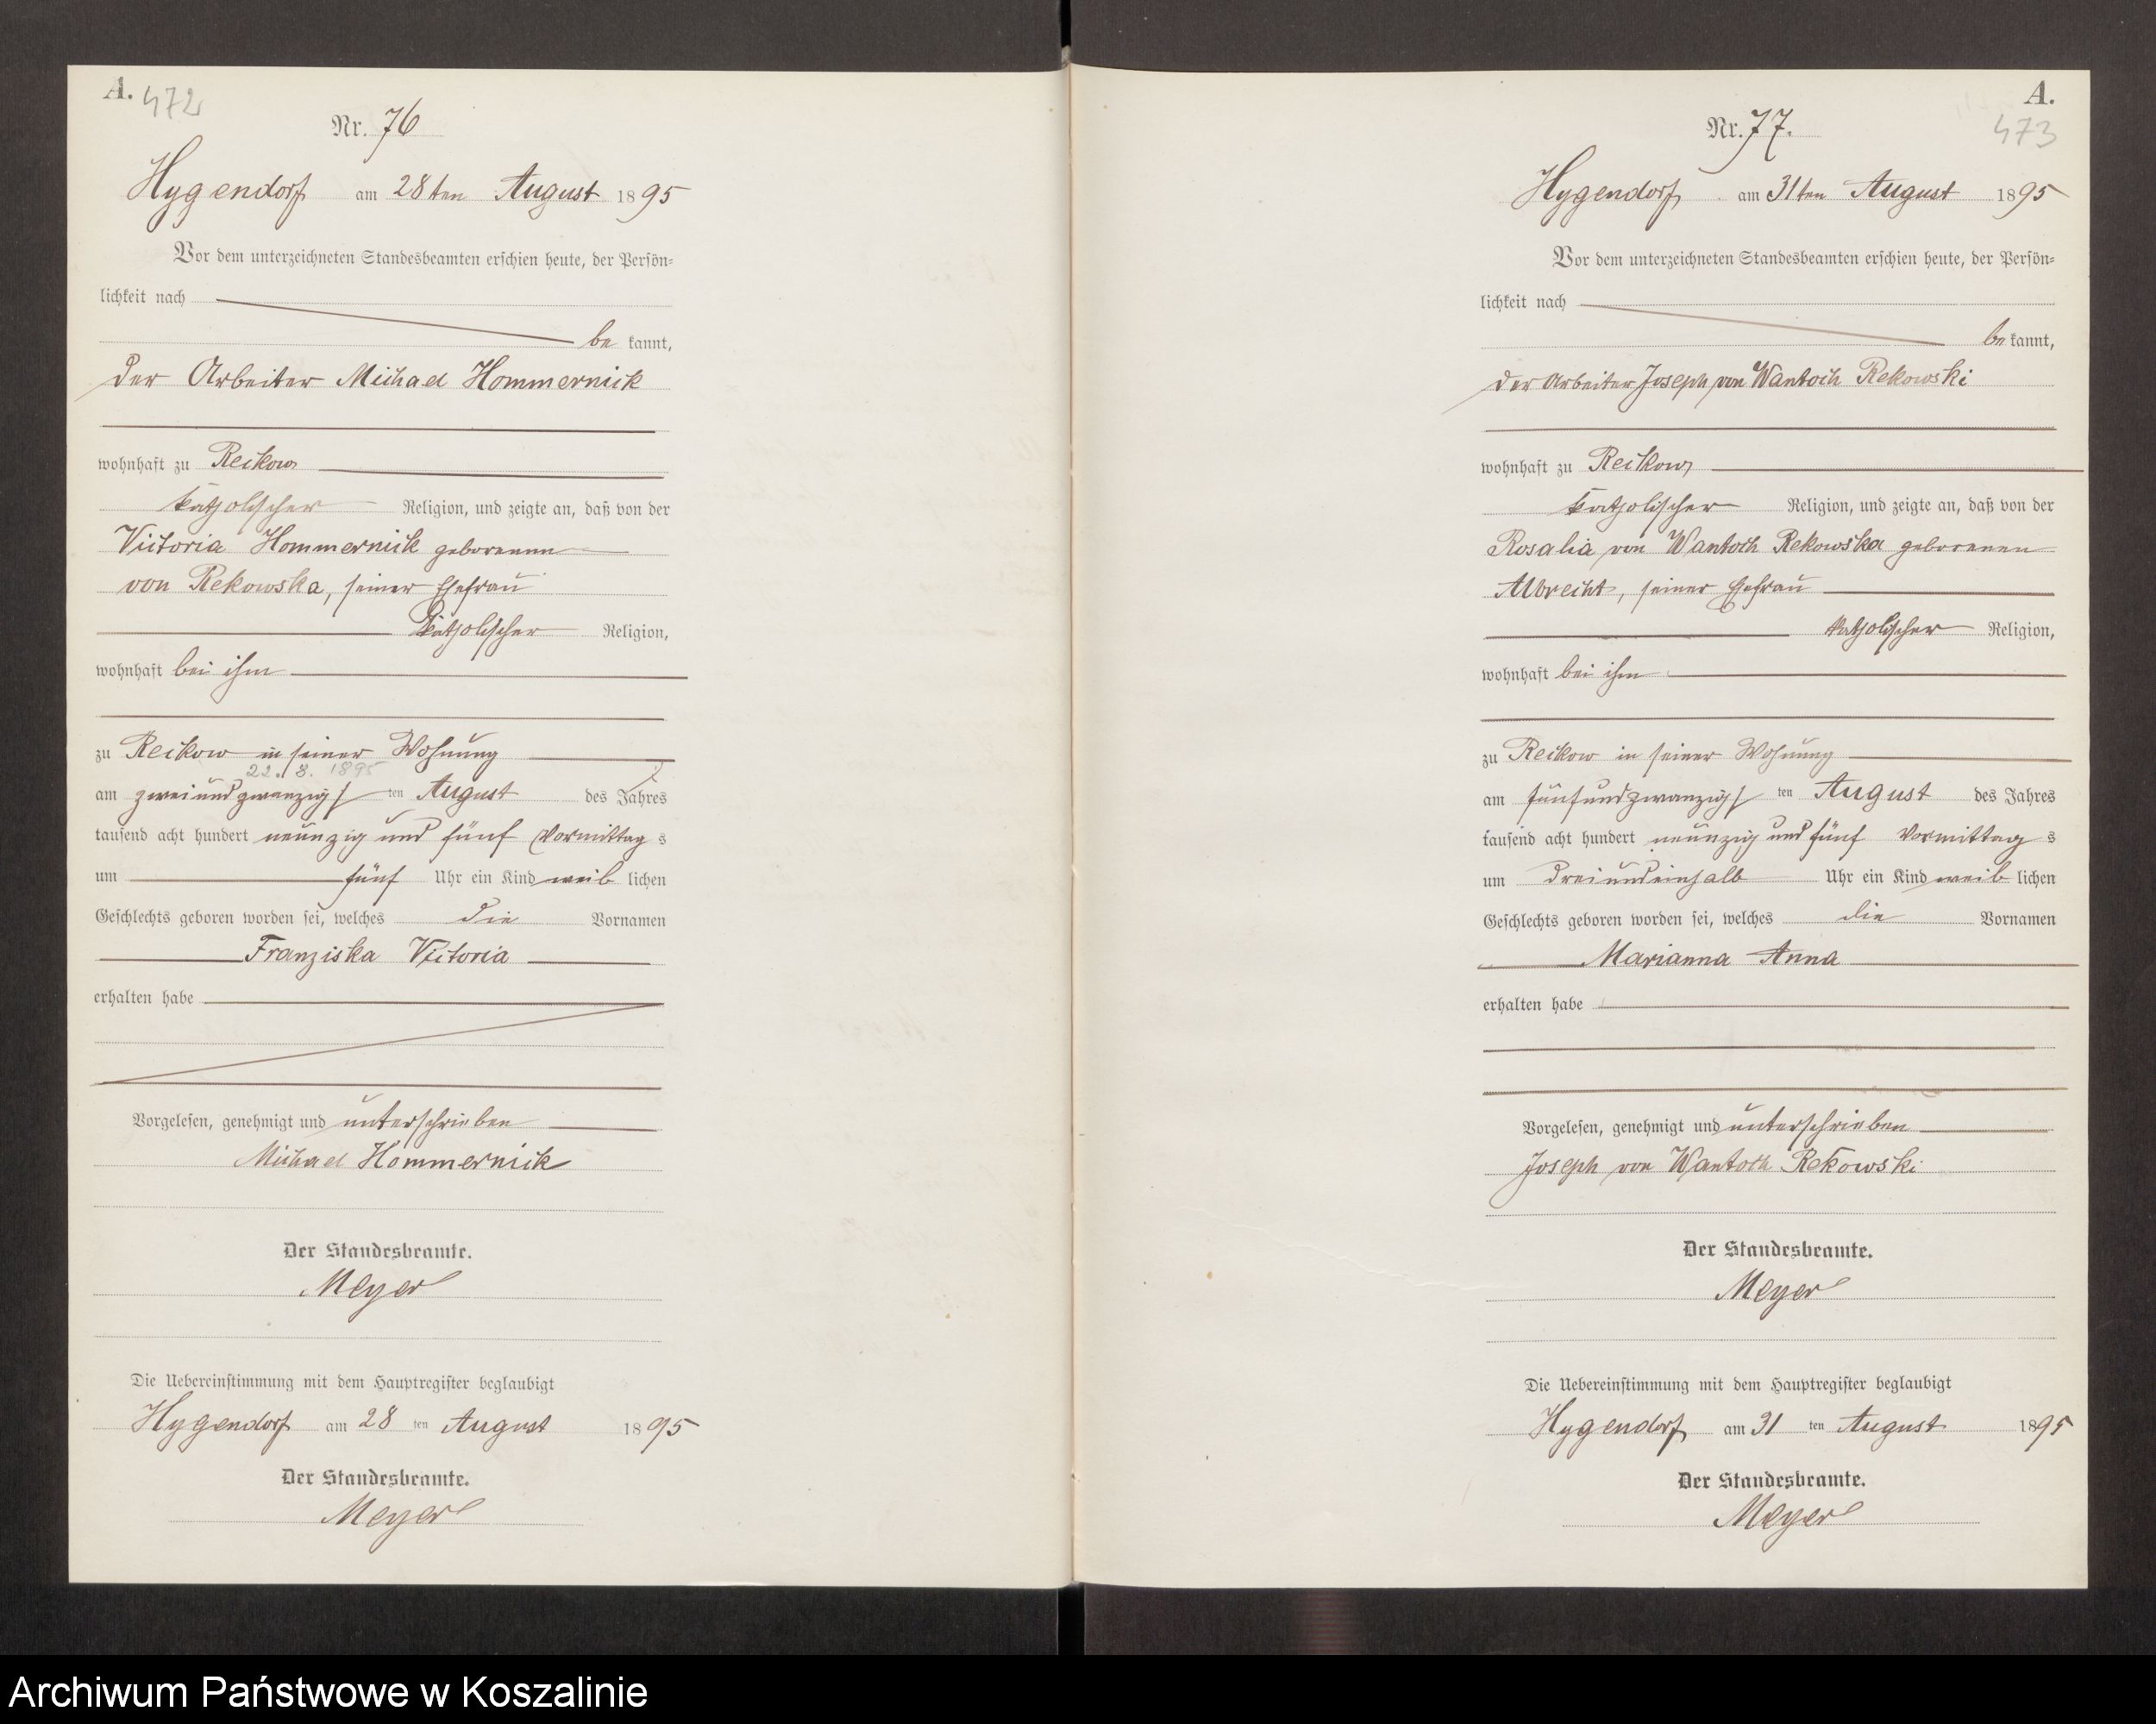 A. 472
Nr. 76
Hygendorf am 28ten August 1895
Vor dem unterzeichneten Standesbeamten erschien heute, der Persön=
lichkeit nach
be kannt,
der Arbeiter Michael Hommernick
wohnhaft zu Reckow
katholischer Religion, und zeigte an, daß von der
Victoria Hommernick geborenen
von Rekowska, seiner Ehefrau
katholischer Religion,
wohnhaft bei ihm
zu Reckow in seiner Wohnung
22. 8. 1895
am zweiundzwanzigsten August des Jahres
tausend acht hundert neunzig und fünf Vormittags
um fünf Uhr ein Kind weiblichen
Geschlechts geboren worden sei, welches die Vornamen
Franziska Victoria
erhalten habe
Vorgelesen, genehmigt und unterschrieben
Michael Hommernick
Der Standesbeamte.
Meyer
Die Uebereinstimmung mit dem Hauptregister beglaubigt
Hygendorf am 28 ten August 1895
Der Standesbeamte.
Meyer
A.
473
Nr. 77.
Hygendorf am 31ten August 1895
Vor dem unterzeichneten Standesbeamten erschien heute, der Persön=
lichkeit nach
be kannt,
der Arbeiter Joseph von Wantoch Rekowski
wohnhaft zu Reckow
katholischer Religion, und zeigte an, daß von der
Rosalia von Wantoch Rekowska geborenen
Albrecht, seiner Ehefrau
katholischer Religion,
wohnhaft bei ihm
zu Reckow in seiner Wohnung
am fünfundzwanzigsten August des Jahres
tausend acht hundert neunzig und fünf Vormittags
um dreiundeinhalb Uhr ein Kind weiblichen
Geschlechts geboren worden sei, welches die Vornamen
Marianna Anna
erhalten habe
Vorgelesen, genehmigt und unterschrieben
Joseph von Wantoch Rekowski
Der Standesbeamte.
Meyer
Die Uebereinstimmung mit dem Hauptregister beglaubigt
Hygendorf am 31 ten August 1895
Der Standesbeamte.
Meyer
Archiwum Państwowe w Koszalinie